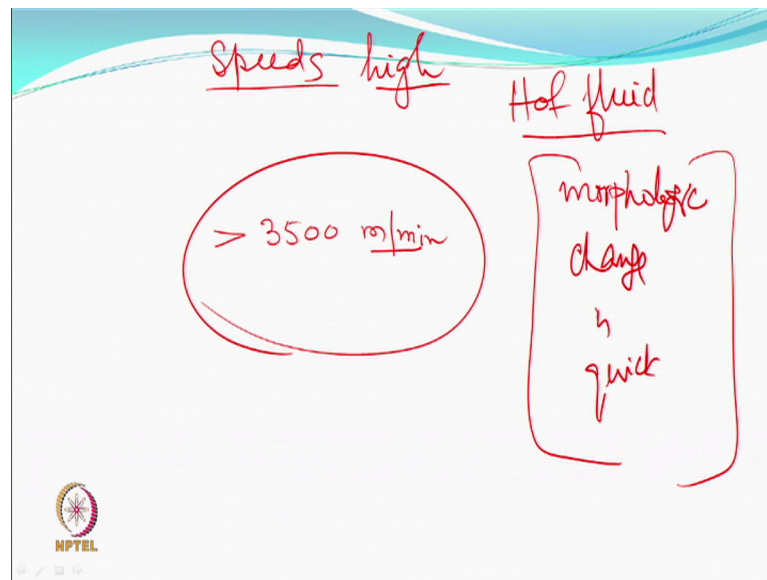 Speeds high
Hot fluid
> 3500 m/min
morphologic
change
is
quick
NPTEL